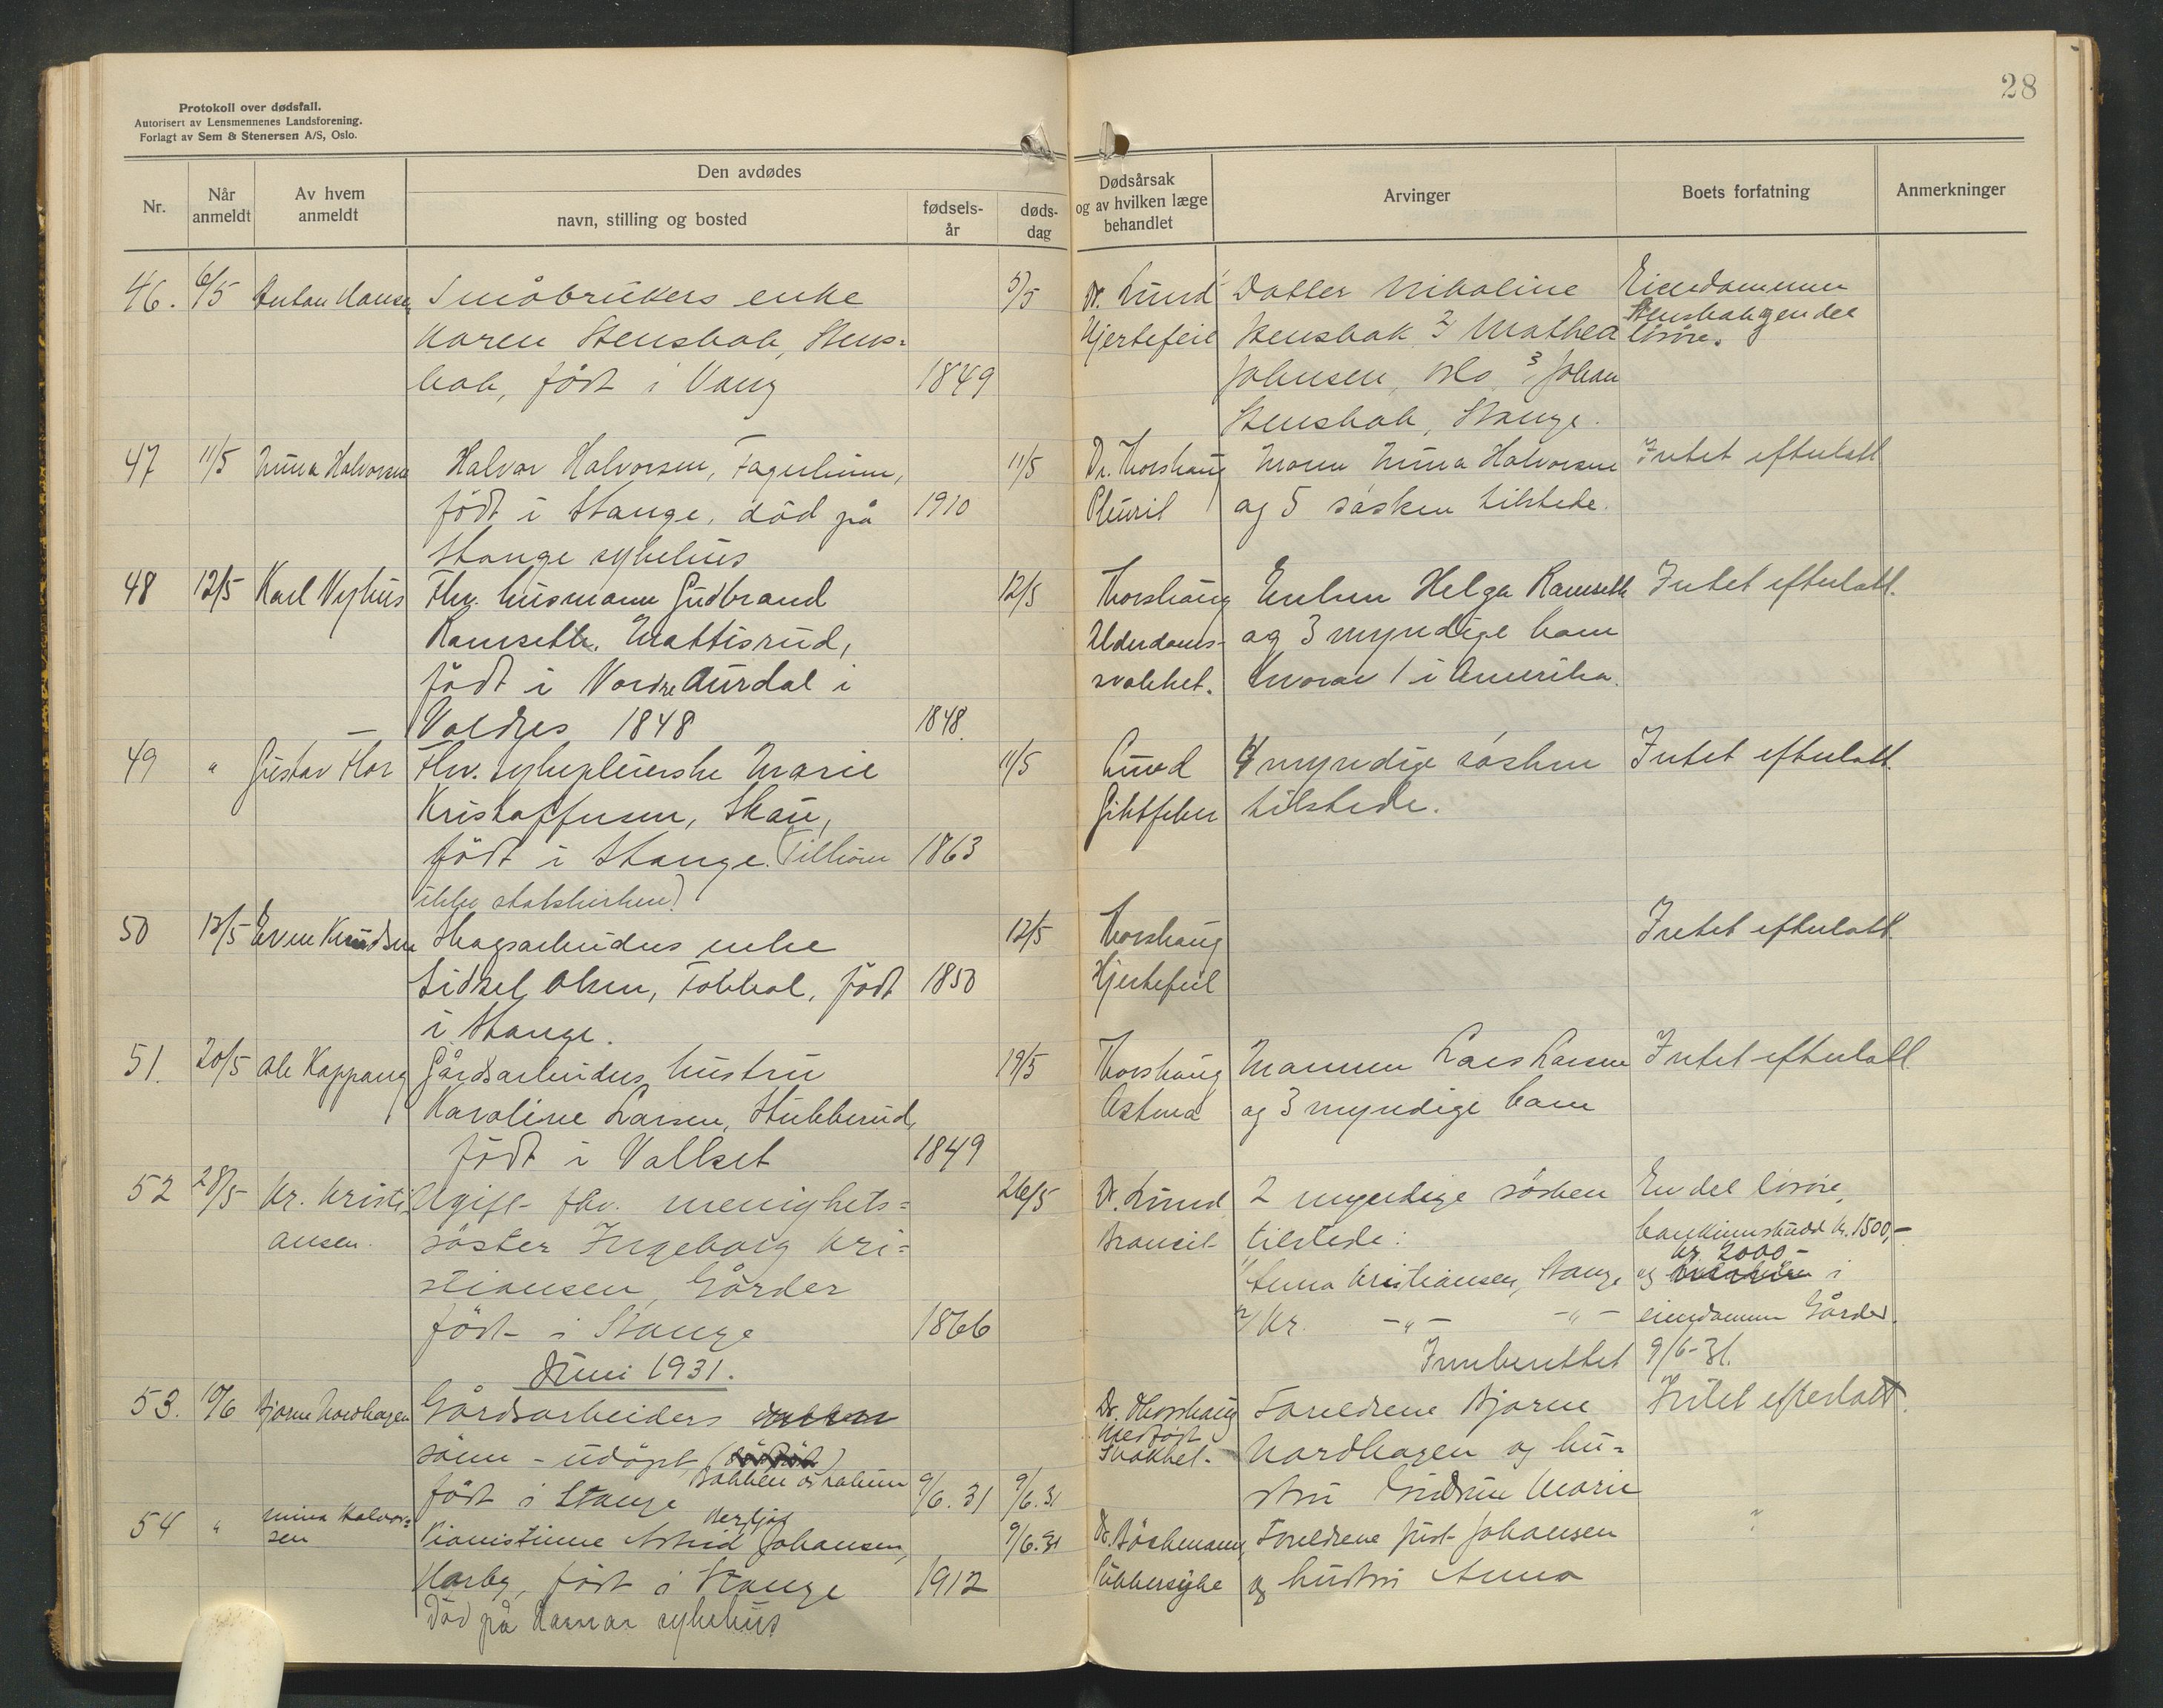 28
Protokoll over dødsfall.
Autorisert av Lensmennenes Landsforening.
Forlagt av Sem & Stenersen A/S, Oslo.
Nr.
Når anmeldt
Av hvem anmeldt
Den avdødes
navn, stilling og bosted
fødsels-år
døds-dag
Dødsårsak og av hvilken læge behandlet
Arvinger
Boets forfatning
Anmerkninger
46. 6/5 Anton Hansen Småbrukers enke 5/5 Dr. Lund Datter Nikoline Eiendommen
Karen Stensbak, Stens= Hjertefeil Stensbak 2/ Mathea Stensbak og en del løsøre.
bak, født i Vang 1849 Johnsen, Oslo 3/ Johan
Stensbak, Stange.
47 11/5 Nina Halvorsen Halvor Halvorsen, Fagerlund, 11/5 Dr. Thorshaug Moren Nina Halvorsen Intet efterlatt
født i Stange, død på 1910 Pleurit og 5 søsken tilstede.
Stange sykehus
48 12/5 Karl Nyhus Fhv. husmann Gudbrand 12/5 Thorshaug Enken Helga Ramseth Intet efterlatt.
Ramseth. Mattisrud, Alderdoms- og 3 myndige barn
født i Nordre Aurdal i svakhet. hvorav 1 i Amerika.
Valdres 1848 1848.
49 " Gustav Flor Fhv. sykepleierske Marie 11/5 Lund 4 myndige søsken Intet efterlatt.
Kristoffersen, Skau, Giktfeber tilstede.
født i Stange. (Tilhører 1863
ikke statskirken)
50 13/5 Even Knudsen Skogsarbeiders enke 12/5 Thorshaug Intet efterlatt.
Sidsel Olsen, Tokkol, født 1850 Hjertefeil
i Stange.
51. 20/5 Ole Kappang Gårdsarbeiders hustru 19/5 Thorshaug Mannen Lars Larsen Intet efterlatt.
Karoline Larsen, Stubberud, Astma og 3 myndige barn
født i Vallset 1849
52 28/5 Kr. Kristi- Ugift fhv. menighets= 26/5 Dr. Lund 2 myndige søsken En del løsøre,
ansen. søster Ingeborg Kri= Bronkit tilstede: bankinnskudd kr. 1500,-
stiansen, Gårder 1/ Anna Kristiansen, Stange og kr. 2000- i
født i Stange 1866 2/ Kr. -"- -"- eiendommen Gårder.
Innberettet 9/6-31.
Juni 1931.
53. 10/6 Bjarne Nordhagen Gårdsarbeiders Dr. Thorshaug Foreldrene Bjarne Intet efterlatt.
sønn - udøpt, Medfødt svakhet. Nordhagen og hu=
født i Stange Bakken 9/6.31 9/6.31 stru Gudrun Marie
54 " Nina Halvor=sen Pianistinne Astrid Johansen, 9/6.31 Dr. Böckmann, Foreldrene Just Johansen "
Harby, født i Stange 1912 Sukkersyke og hustru Anna
død på Hamar sykehus